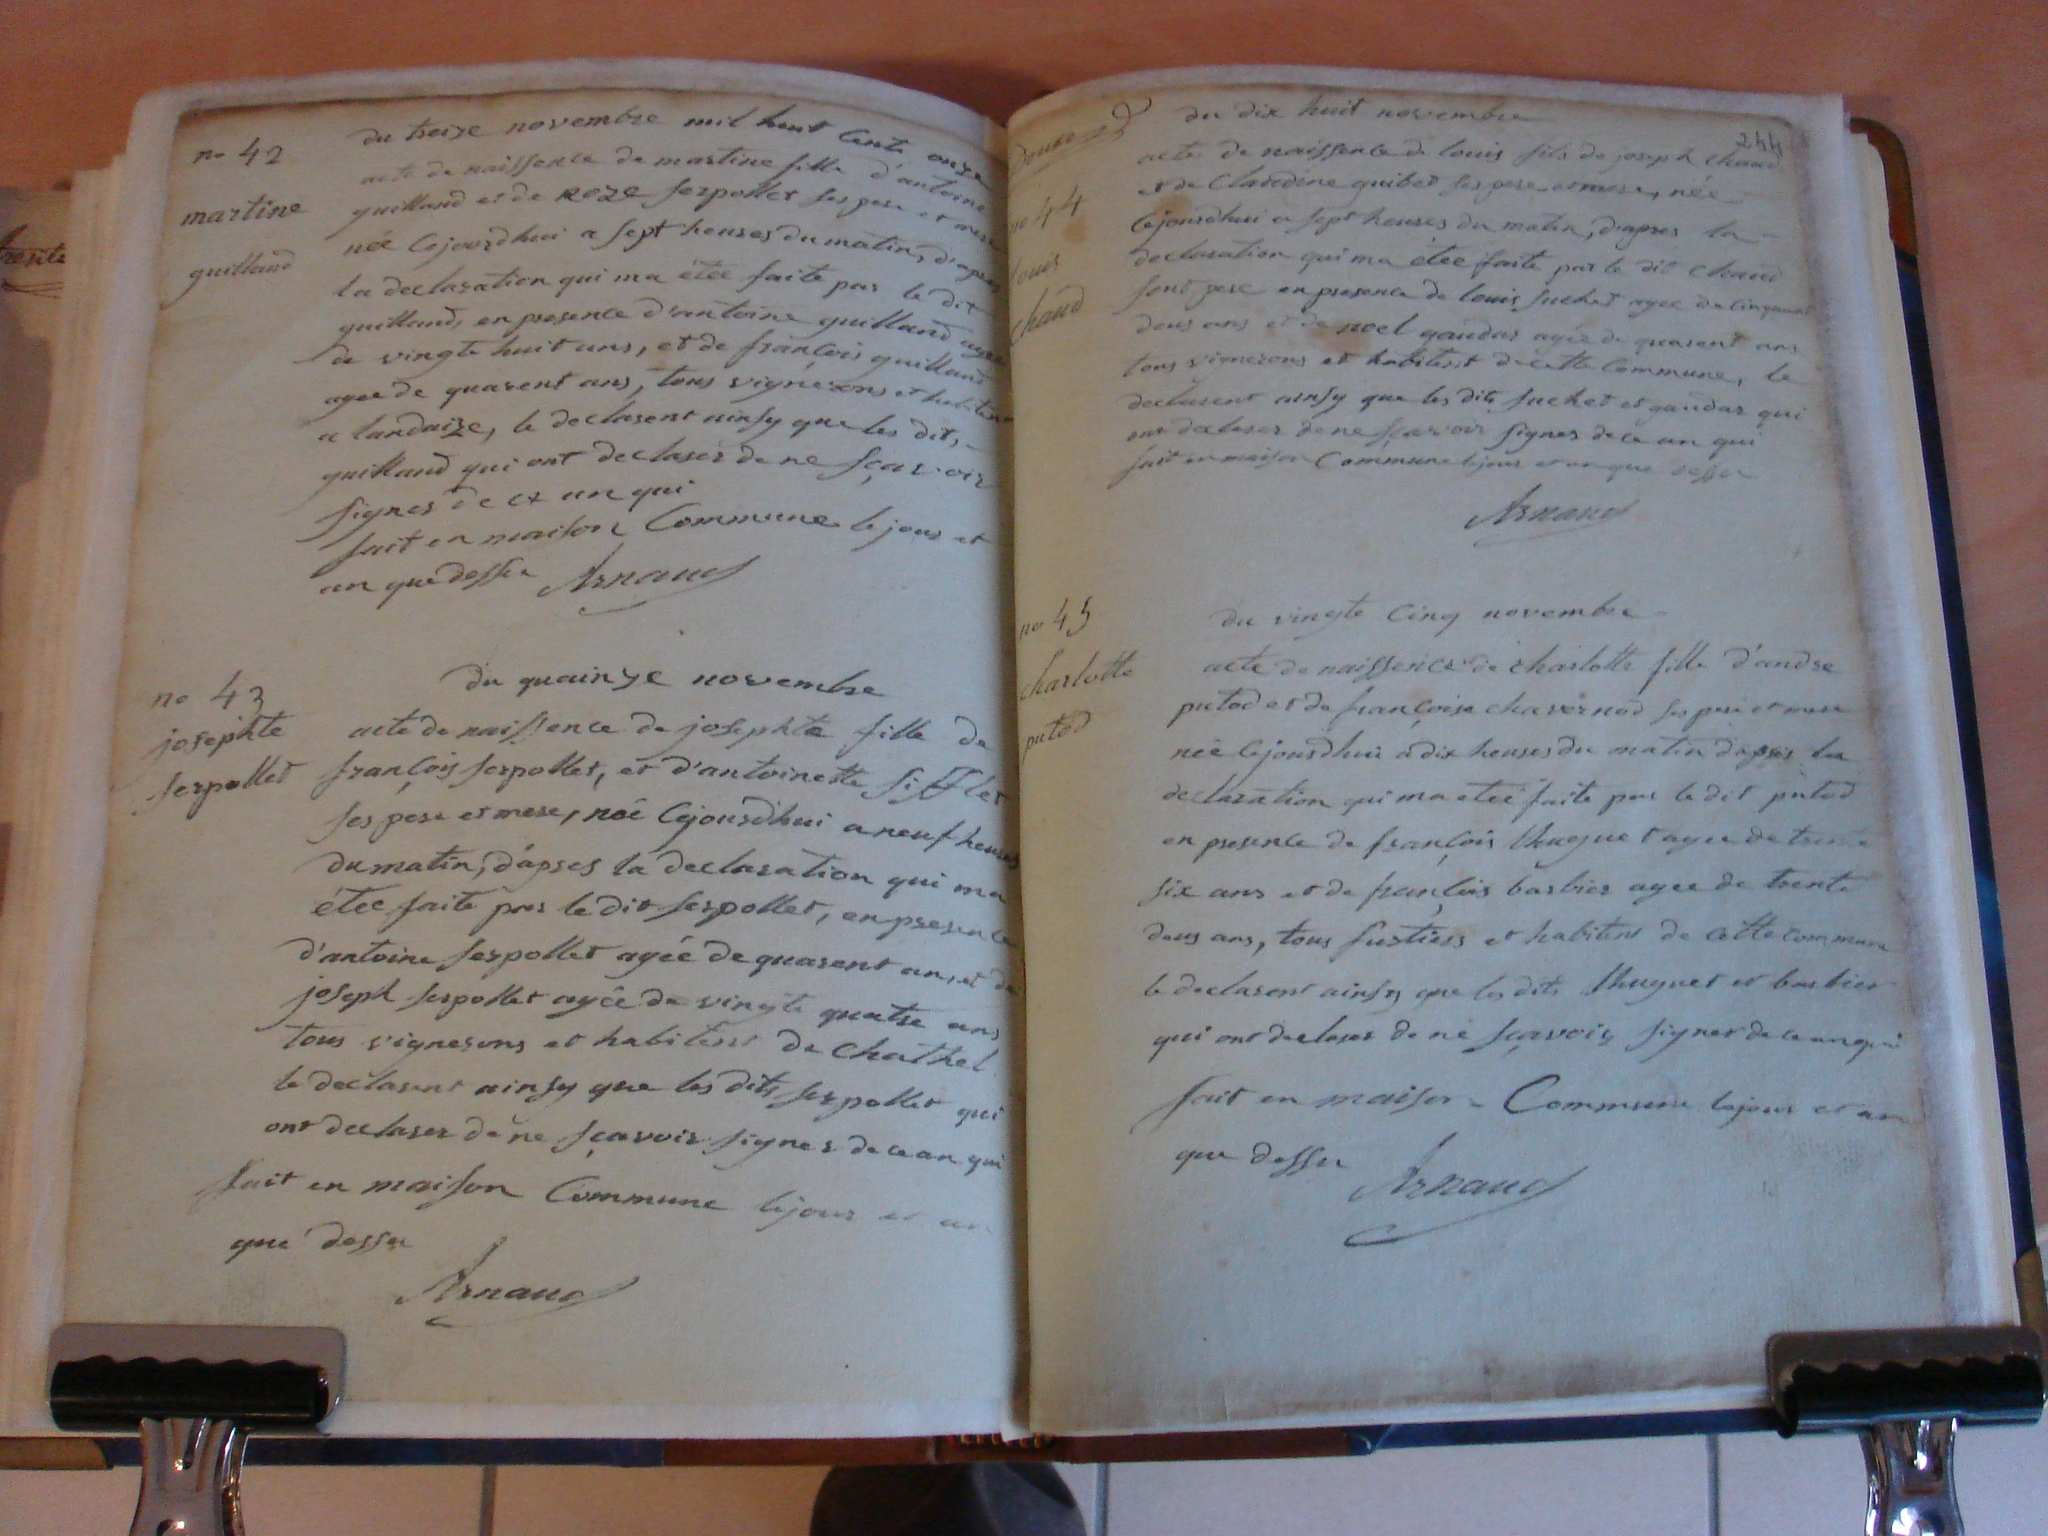 no 42
martine
guilland
du treize novembre mil huit cents onze
acte de naissence de martine fille d'antoine
guilland et de roze serpollet ses pere et mere
née cejourdhui a sept heures du matin, d'apres
la declaration qui ma étée faite par le dit
guilland, en presence d'antoine guilland agée
de vingte huit ans, et de françois guilland
agee de quarent ans, tous vignerons et habitent
a landaize, le declarent ainsy que les dits
guilland qui ont declarer de ne sçavoir
signer de ce un qui
fait en maison Commune le jour et
an que dessu Arnaud
no 43
josephte
serpollet
du quainze novembre
acte de naissence de josephte fille de
françois serpollet, et d'antoinette sifflet
ses pere et mere, née cejourdhui a neuf heures
du matin, d'apres la declaration qui ma
étée faite par le dit serpollet, en presence
d'antoine serpollet agée de quarent ans, et de
joseph serpollet agée de vingte quatre ans
tous vignerons et habitent de chathel
le declarent ainsy que les dits serpollet qui
ont declarer de ne sçavoir signer de ce un qui
fait en maison Commune le jour et an
que dessu
Arnaud
244
douze
no 44
louis
chaud
du dix huit novembre
acte de naissence de louis fils de joseph chaud
et de Claudine guibet ses pere et mere, née
cejourdhui a sept heures du matin, d'apres la
declaration qui ma étée faite par le dit chaud
sont pere en presence de louis suchet agee de cinquant
deus ans et de noel gaudar agée de quarent ans
tous vignerons et habitent de cette Commune, le
declarent ainsy que les dits suchet et gaudar qui
ont declarer de ne sçavoir signer de ce un qui
fait en maison Commune le jour et an que dessu
Arnaud
no 45
charlotte
putod
du vingte cinq novembre
acte de naissence de charlotte fille d'andre
putod et de françoise chavernod ses pere et mere
née cejourdhui a dix heures du matin d'apres la
declaration qui ma etée faite par le dit putod
en presence de françois thuguet agee de trente
six ans et de françois barbier agee de trente
deus ans, tous fustiers et habitent de cette commune
le declarent ainsy que les dits thuguet et barbier
qui ont declarer de ne sçavoir signer de ce un qui
fait en maison Commune le jour et an
que dessu
Arnaud